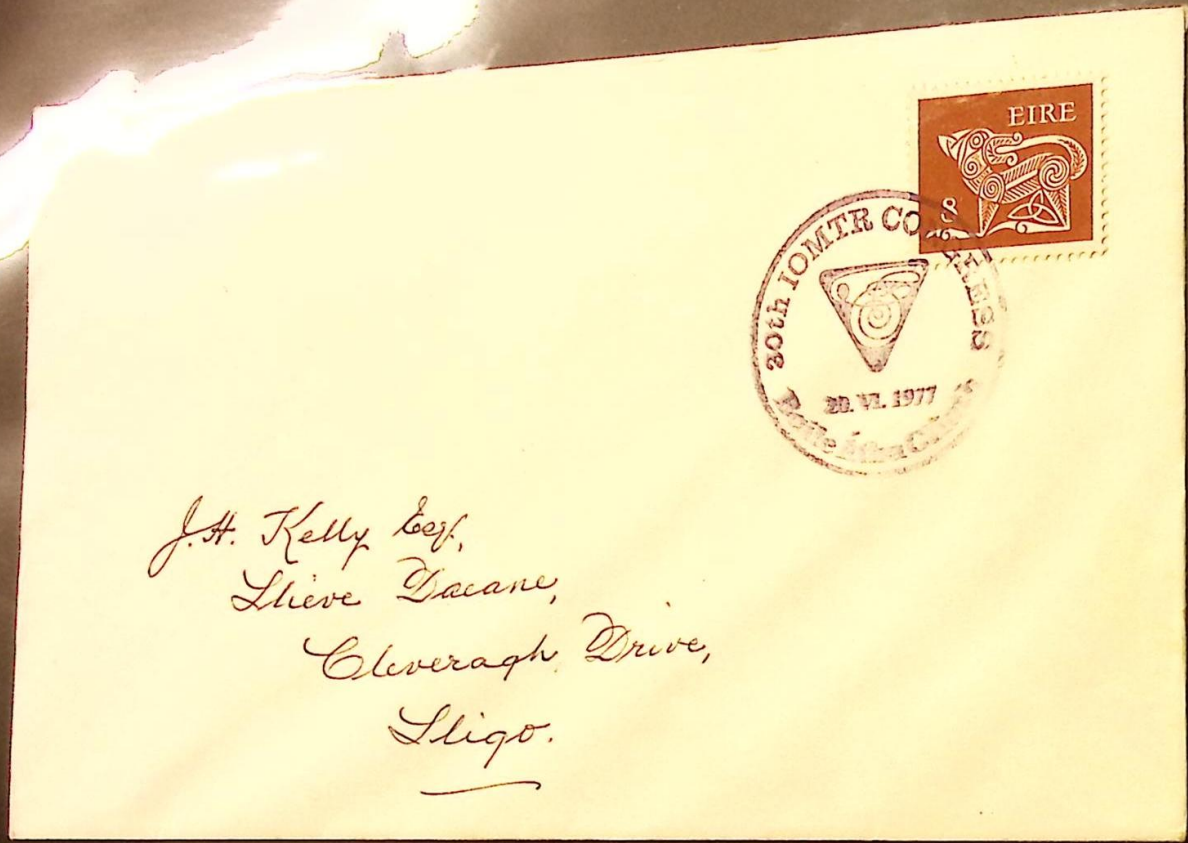 EIRE
8
20th IOMTR CONGRESS
20. VI. 1977
Baile Átha Cliath
J.H. Kelly Esq.,
Slieve Dacane,
Cleveragh Drive,
Sligo.